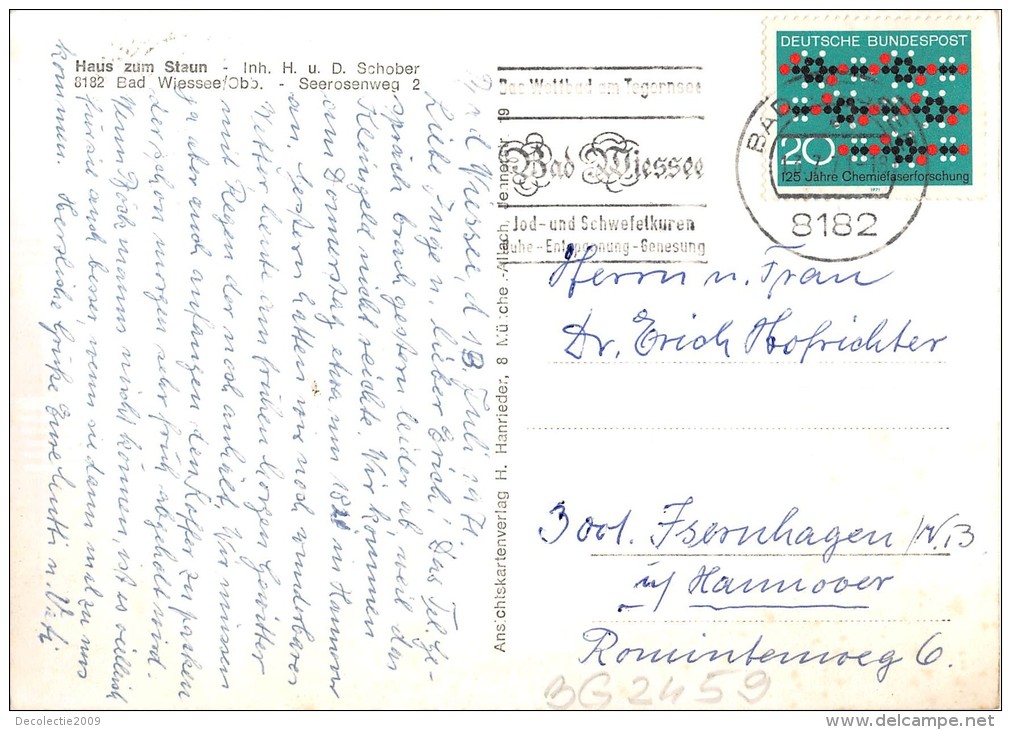 Haus zum Staun - Inh. H. u. D. Schober
8182 Bad Wiessee/Obb. - Seerosenweg 2
Das Weltbad am Tegernsee
Bad Wiessee
Jod- und Schwefelkuren
Ruhe - Entspannung - Genesung
DEUTSCHE BUNDESPOST
20
125 Jahre Chemiefaserforschung
1971
BAD
8182
Ansichtskartenverlag H. Hanrieder, 8 München-Allach, Jennerstr. 19
Bad Wiessee, d 13. Juli 1971
Liebe Inge u. lieber Erich! Das Tel. Ge-
spräch brach gestern leider ab, weil das
Kleingeld nicht reichte. Wir kommen
am Donnerstag etwa um 18 in Hannover
an. Gestern hatten wir noch wunderbares
Wetter heute am frühen Morgen Gewitter
mit Regen der noch anhält. Wir müssen
ja aber auch anfangen den Koffer zu packen
der schon morgen sehr früh abgeholt wird.
Wenn nicht können, ist es vielleicht
für sie auch besser, wenn sie dann mal zu uns
kommen. Herzliche Grüße Eure Mutti u. Vati
Herrn u. Frau
Dr. Erich Hofrichter
3001 Isernhagen /N.B
ü/ Hannover
Rominterweg 6.
BG2459
Decolectie2009
www.delcampe.net